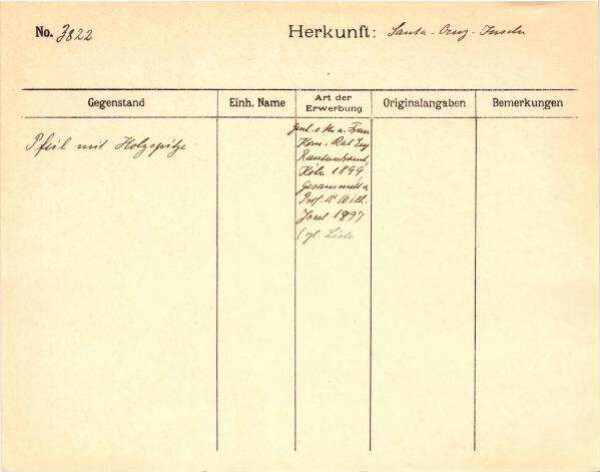 No. 3822 Herkunft: Santa-Cruz-Inseln
Gegenstand Einh. Name Art der Erwerbung Originalangaben Bemerkungen
Pfeil mit Holzspitze
Gesch. v. H. u. Frau
Kom. Rat Eug
Rautenstrauch,
Köln 1899,
Gesammelt v.
Prof. Dr Wilh.
Joest 1897
(vgl. Liste